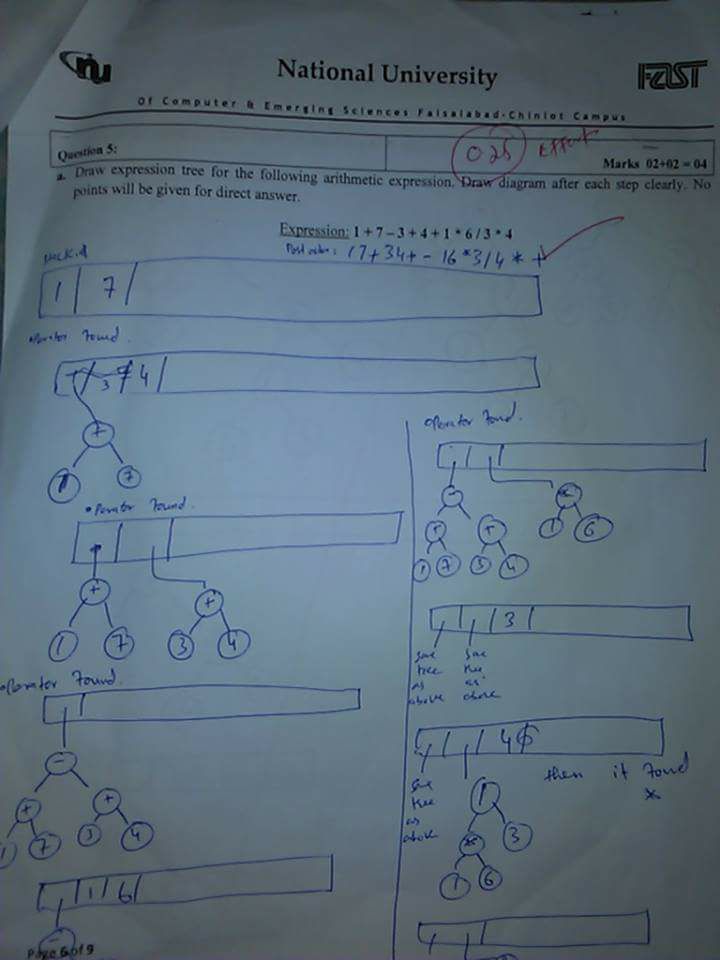 nu
National University
FAST
Of Computer & Emerging Sciences Faisalabad-Chiniot Campus
Question 5:
025 Effort
Marks 02+02 = 04
a. Draw expression tree for the following arithmetic expression. Draw diagram after each step clearly. No
points will be given for direct answer.
Expression: 1 + 7 – 3 + 4 + 1 * 6 / 3 * 4
Post order: 17+34+- 16*3/4*+
1 7
operator found.
3 4
+
1 7
operator found.
+ +
1 7 3 4
operator found.
-
+ +
1 7 3 4
1 6
-
Page 6 of 9
operator found.
- *
+ + 1 6
1 7 3 4
3
same same
tree tree
as as
above above
4
then it found
*
same
tree
as
above
/
* 3
1 6